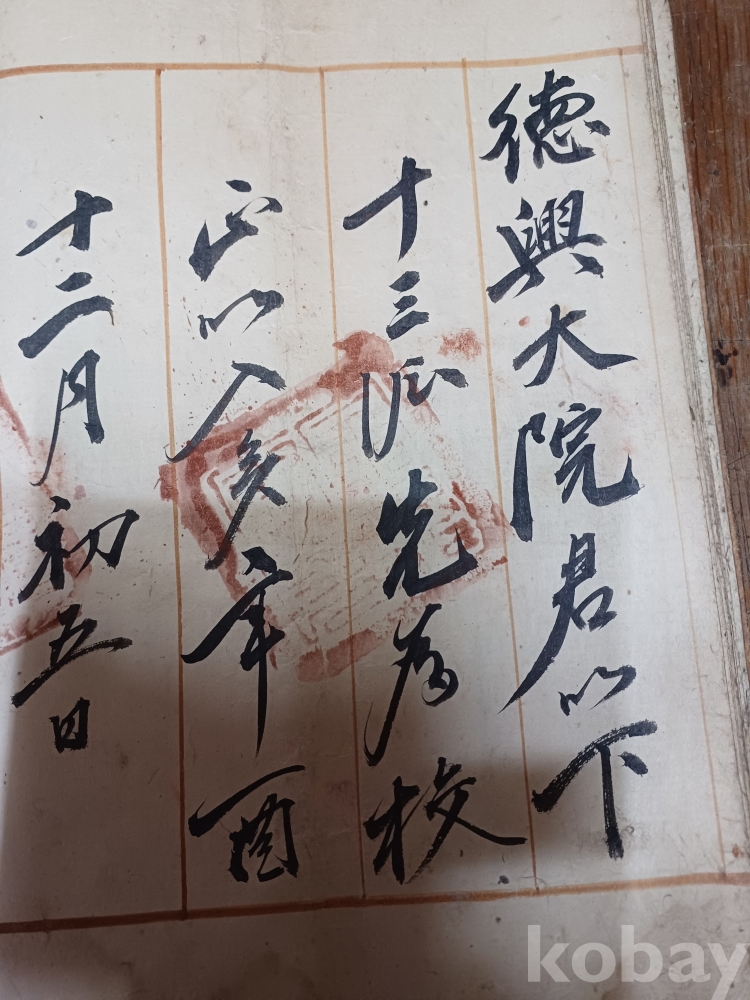 德興大院君以下
十三派先為校
正以入矣辛酉
十二月初五日
kobay